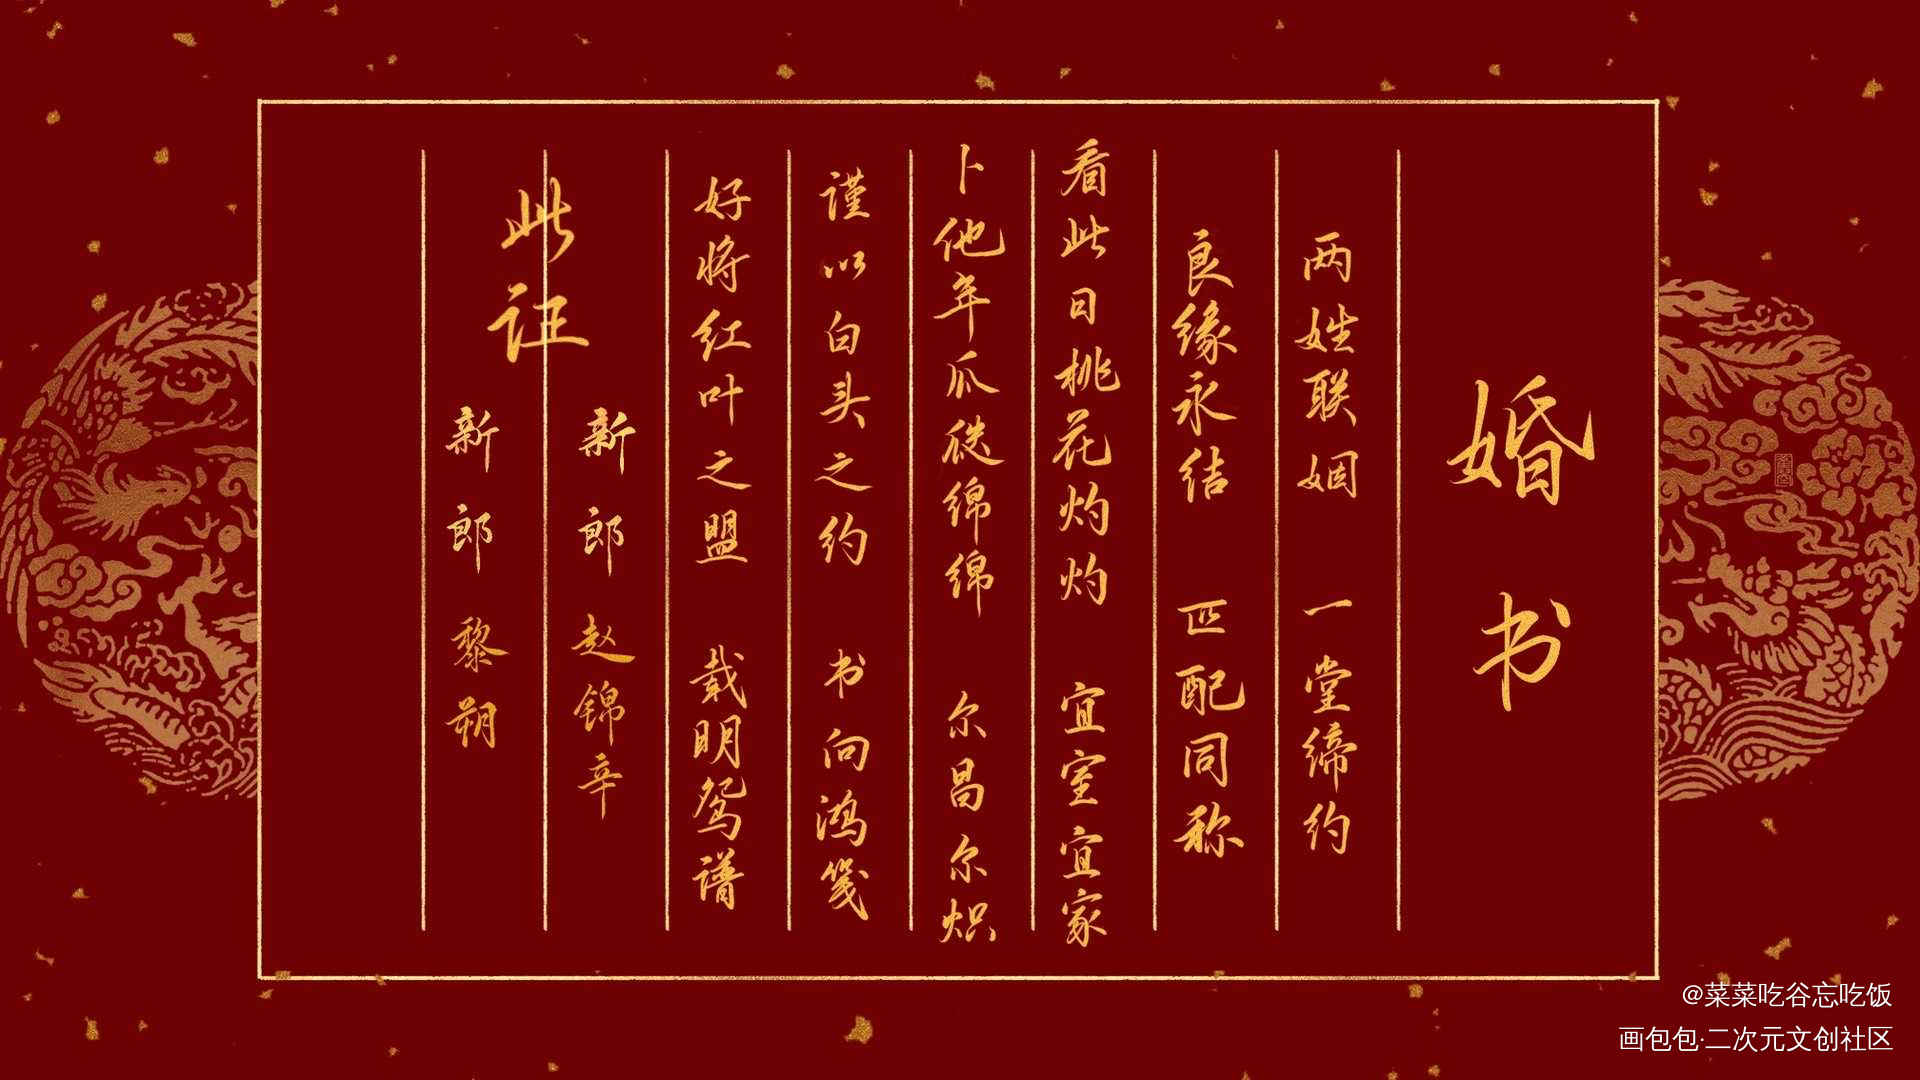 婚书
两姓联姻 一堂缔约
良缘永结 匹配同称
看此日桃花灼灼 宜室宜家
卜他年瓜瓞绵绵 尔昌尔炽
谨以白头之约 书向鸿笺
好将红叶之盟 载明鸳谱
此证
新郎 赵锦辛
新郎 黎朔
@菜菜吃谷忘吃饭
画包包·二次元文创社区